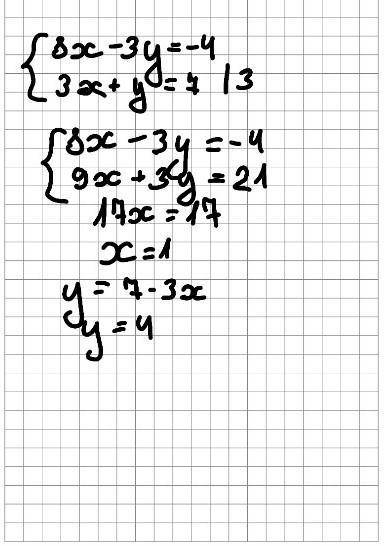 8x - 3y = -4
3x + y = 7 | 3
8x - 3y = -4
9x + 3y = 21
17x = 17
x = 1
y = 7 - 3x
y = 4